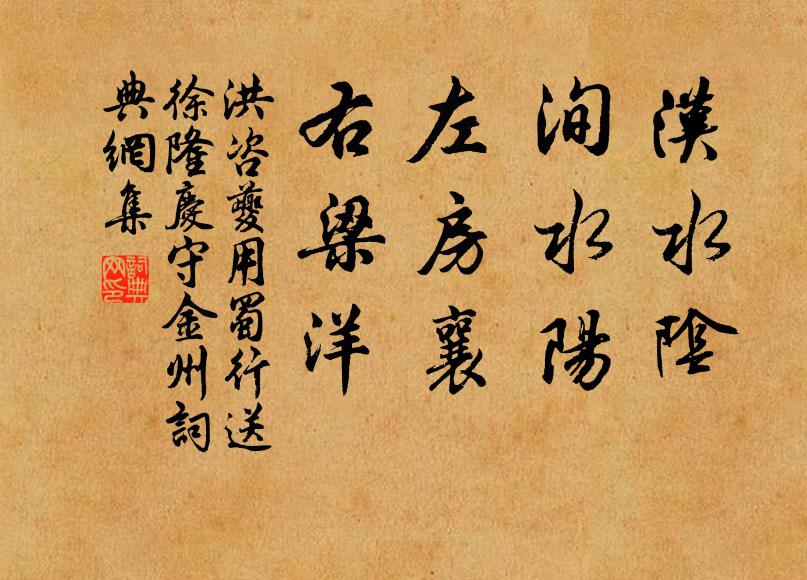 漢水陰
洵水陽
左房襄
右梁洋
洪咨夔用蜀行送
徐隆慶守金州詞
典網集
詞典網印